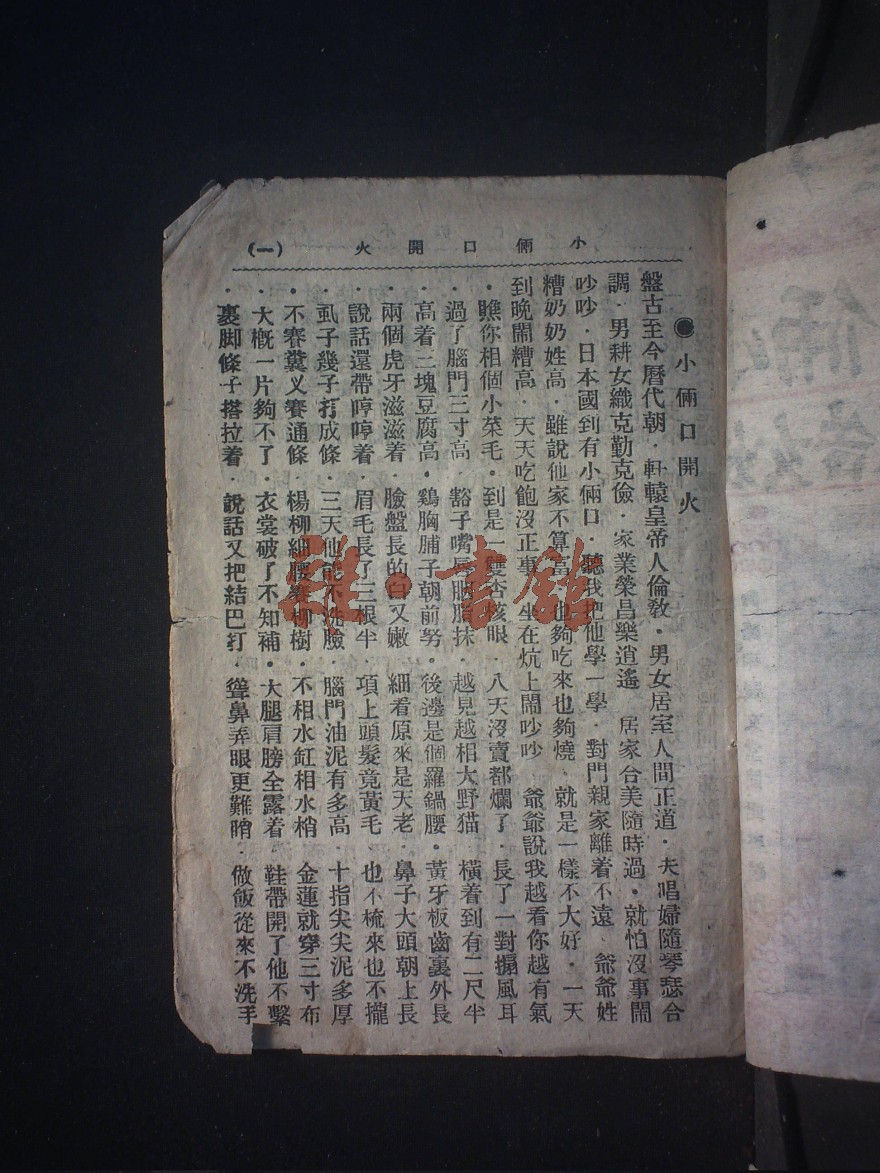 小倆口開火 (一)
●小倆口開火
盤古至今曆代朝．軒轅皇帝人倫教．男女居室人間正道．夫唱婦隨琴瑟合
調．男耕女織克勤克儉．家業榮昌樂逍遙 居家台美隨時過．就怕沒事鬧
吵吵．日本國到有小倆口．聽我把他學一學．對門親家離着不遠 爺爺姓
糟奶奶姓高．雖說他家不算高 也夠吃來也夠燒．就是一樣不大好．一天
到晚鬧糟高．天天吃飽沒正事 坐在炕上鬧吵吵 爺爺說我越看你越有氣
．瞧你相個小菜毛。到是一雙杏核眼．八天沒賣都爛了．長了一對搧風耳
．過了腦門三寸高．豁子嘴唇胭脂抹．越見越相大野猫．橫着到有二尺半
．高着三塊豆腐高．鷄胸脯子朝前努。後邊是個羅鍋腰。黃牙板齒裏外長
．兩個虎牙滋滋着．臉盤長的白又嫩．細看原來是天老．鼻子大頭朝上長
．說話還帶哼哼着．眉毛長了三根半．項上頭髮竟黃毛．也不梳來也不攏
．虱子幾子打成條．三天他能不洗臉．腦門油泥有多高．十指尖尖泥多厚
．不賽糞义賽通條．楊柳細腰賽柳樹．不相水缸相水梢．金蓮就穿三寸布
．大概一片夠不了．衣裳破了不知補．大腿肩膀全露着．鞋帶開了他不繫
．裹脚條子搭拉着．說話又把結巴打．聳鼻弄眼更難睄．做飯從來不洗手
雜·書館